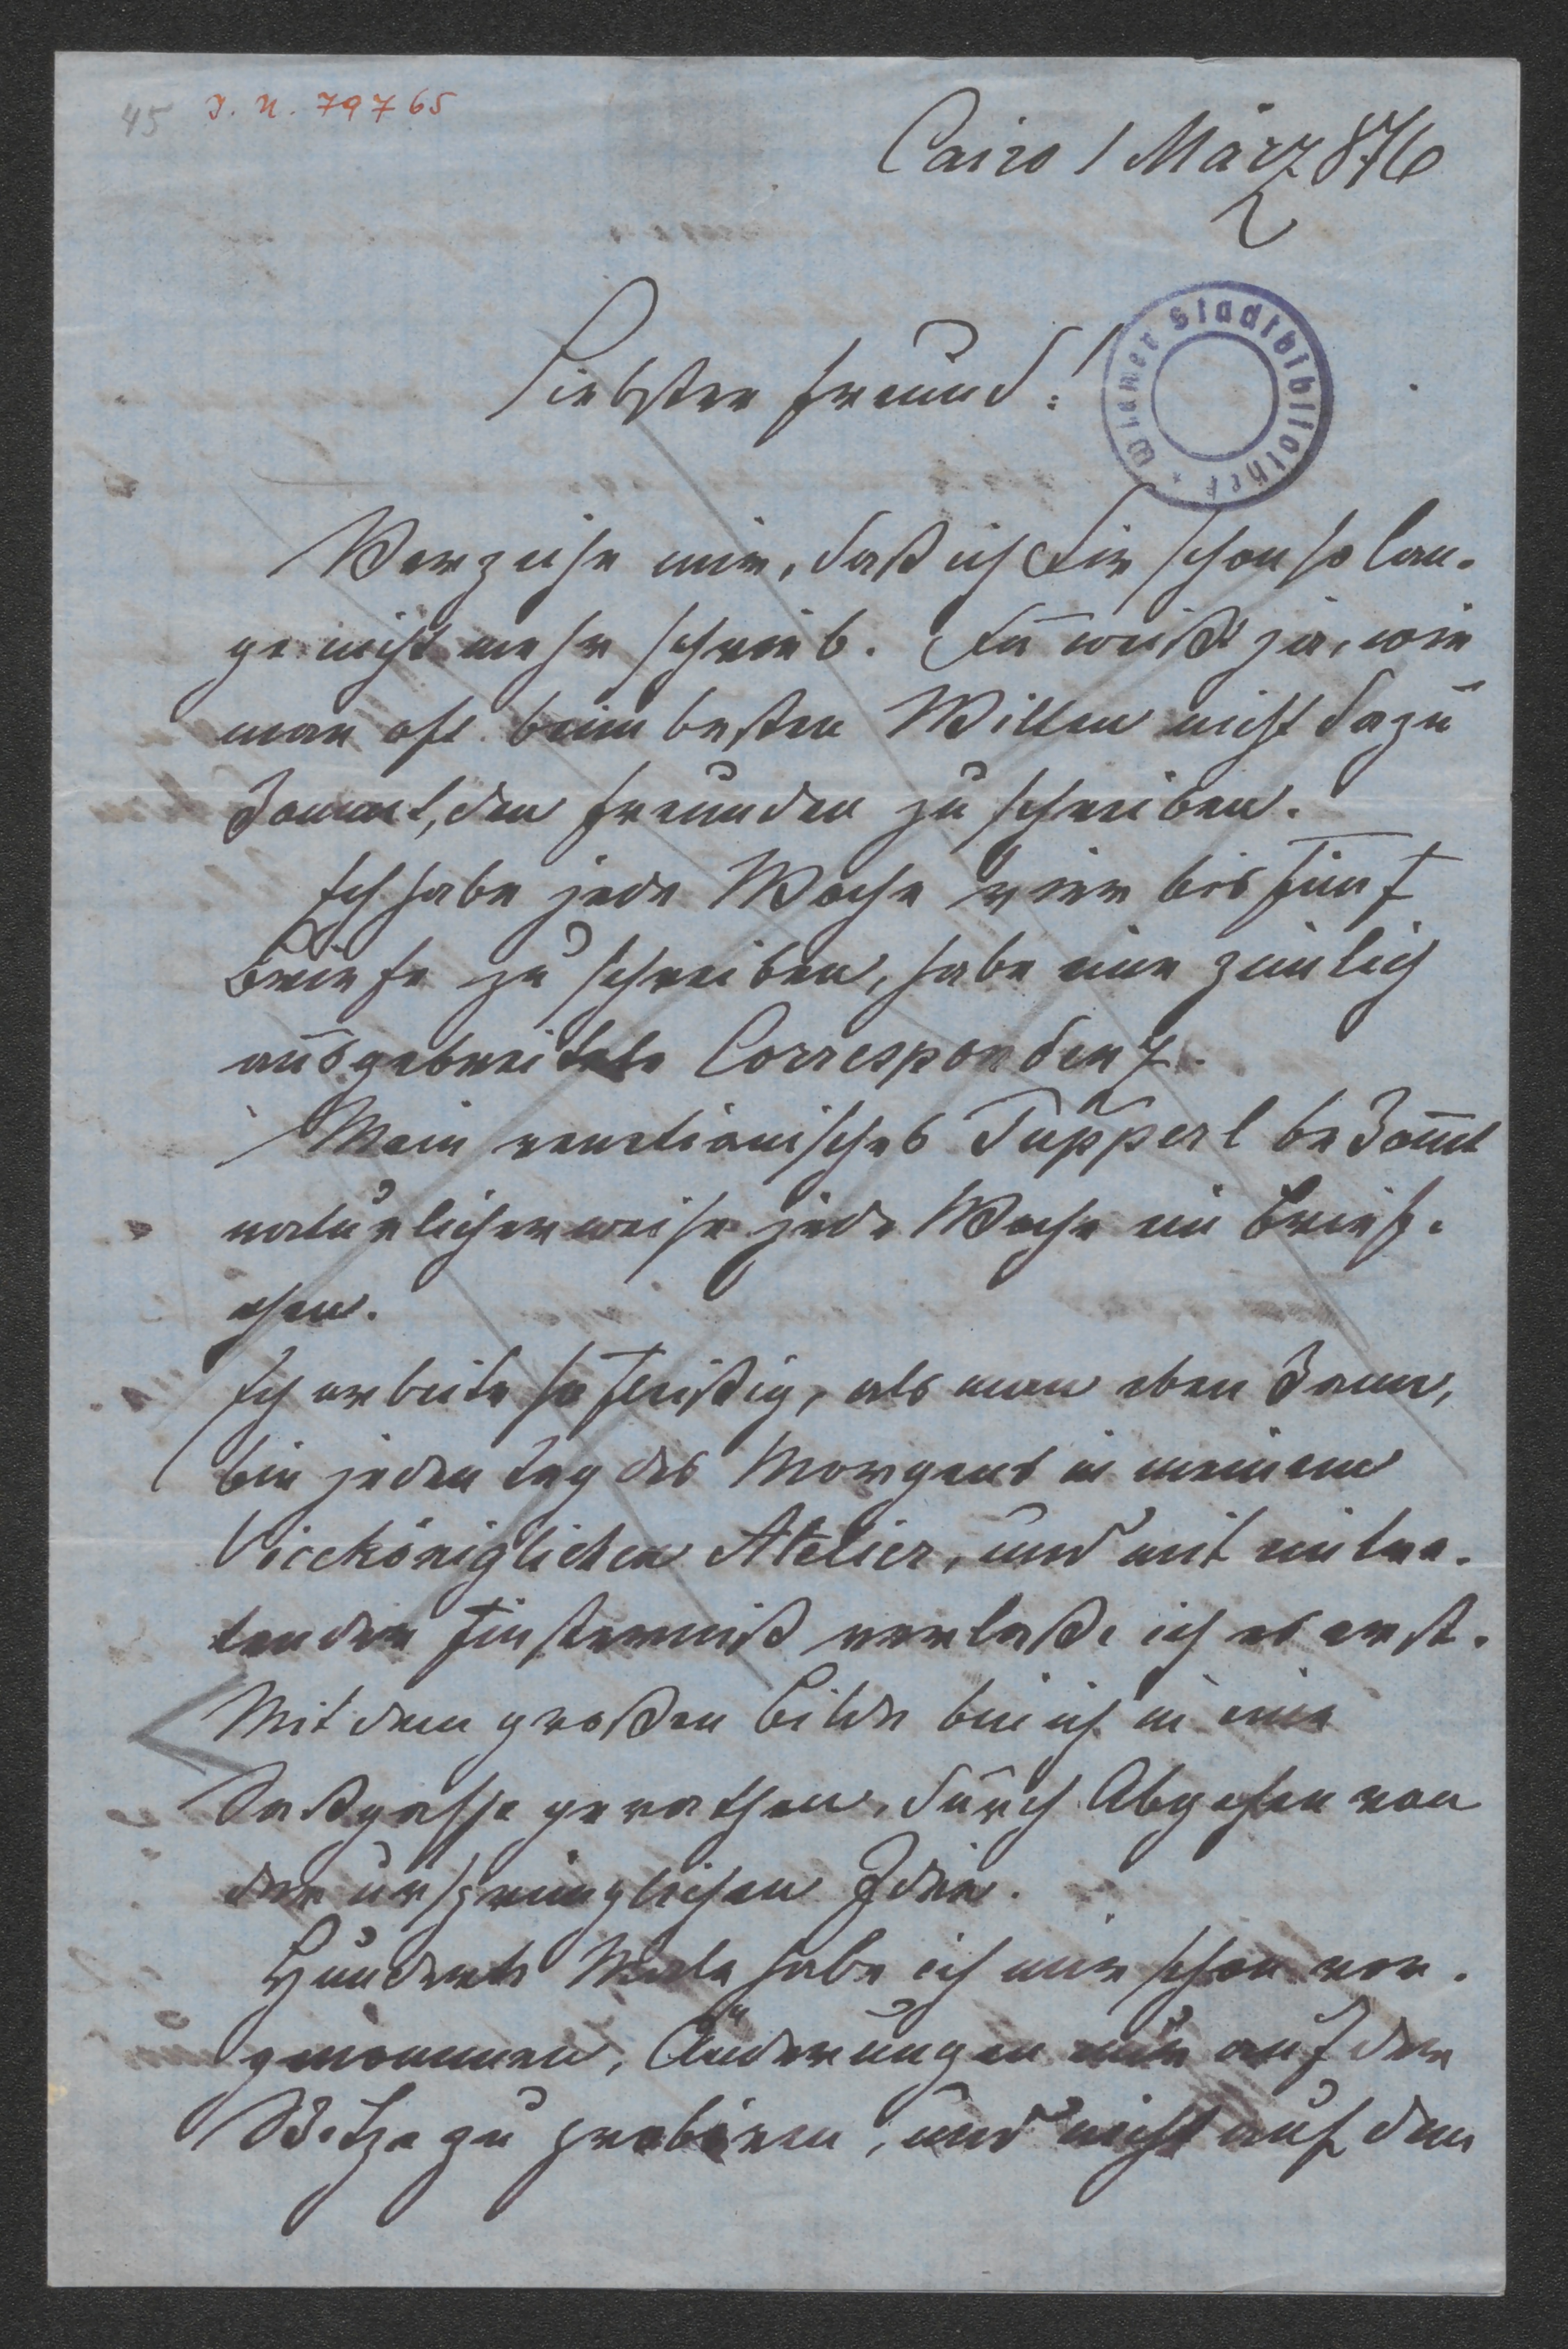 45 I. N. 79765
Cairo 1 März 876
Liebster Freund!
Wiener Stadtbibliothek
Verzeihe mir, daß ich Dir schon so lan-
ge nicht mehr schrieb. Du weißt ja, wie
man oft beim besten Willen nicht dazu
kommt, den Freunden zu schreiben.
Ich habe jede Woche vier bis fünf
Briefe zu schreiben, habe eine zimlich
ausgebreitete Correspondenz.
Mein venetianisches Tupperl bekom̄t
natürlicherweise jede Woche ein Brief-
chen.
Ich arbeite so fleißig, als man eben kann,
bin jeden Tag des Morgens in meinem
Viceköniglichen Atelier, und mit eintre-
tender Finsterniß verlaße ich es erst.
Mit dem großen Bilde bin ich in eine
Sackgasse gerathen, durch Abgehen von
der ursprünglichen Idee.
Hunderte Male habe ich mir schon vor-
genommen, Änderungen nur auf der
Skitze zu probiren, und nicht auf dem